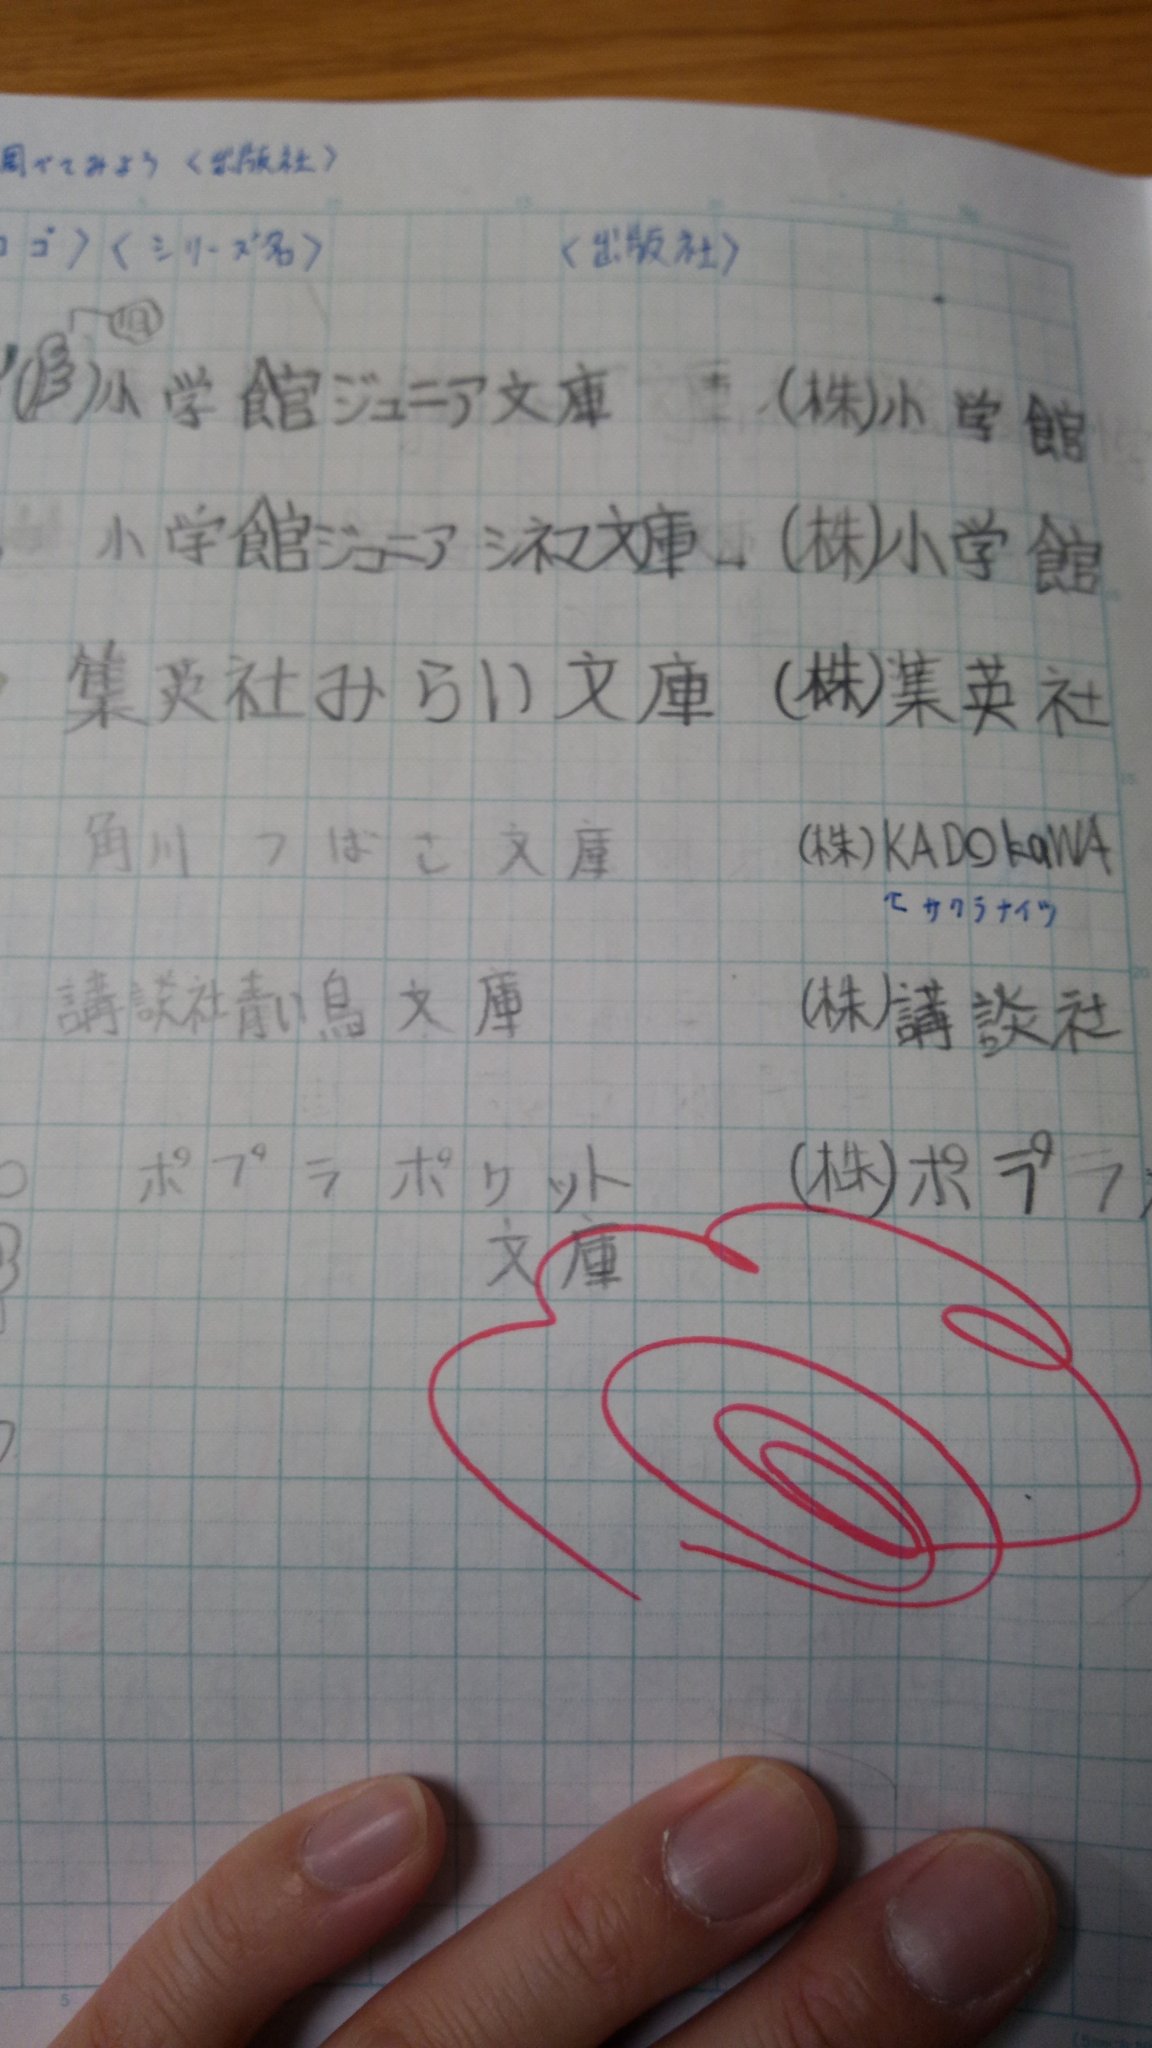 べてみよう〈出版社〉
ゴ〉〈シリーズ名〉 〈出版社〉
小学館ジュニア文庫 (株)小学館
小学館ジュニアシネマ文庫 (株)小学館
集英社みらい文庫 (株)集英社
角川つばさ文庫 (株)KADOkaWA
サクラナイツ
講談社青い鳥文庫 (株)講談社
ポプラポケット (株)ポプラ
文庫